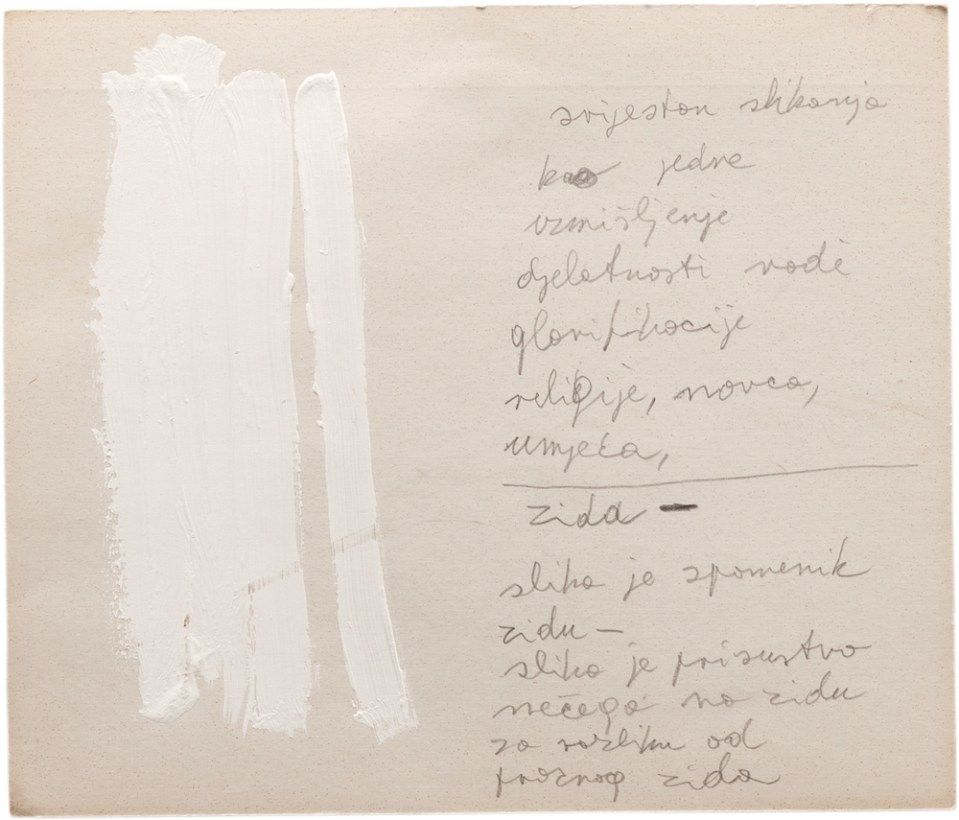 svijeston slikanja
kao jedne
uzmišljenje
djelatnosti vodė
glorifikacije
religije, novca,
umjeća,
zida —
slika je spomenik
zidu —
slika je prisustvo
nečega na zidu
za razliku od
praznog zida